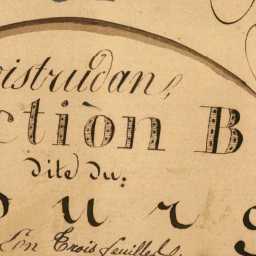 istrudan,
ction B
dite du:
o u r g
En Trois feuilles.